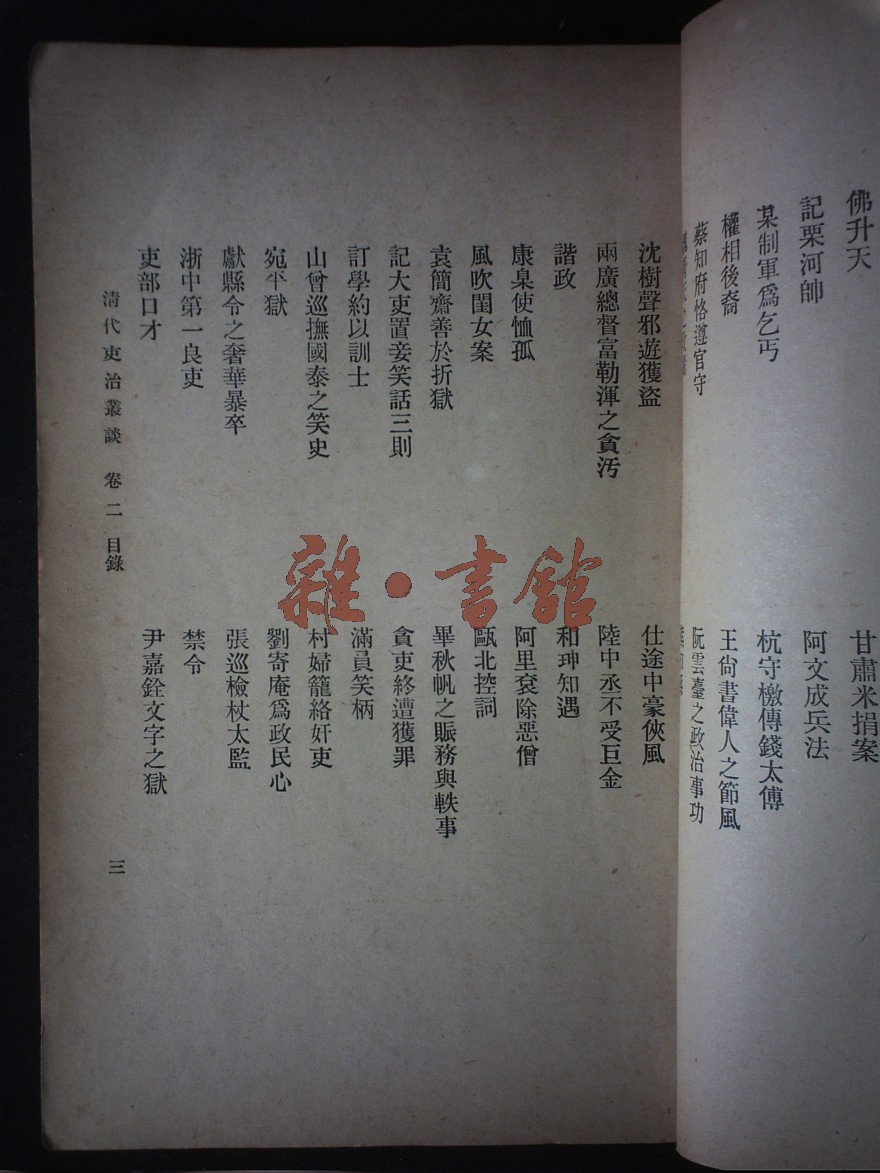 佛升天
甘肅米捐案
記栗河帥
阿文成兵法
某制軍爲乞丐
杭守檄傳錢太傅
權相後裔
王尙書偉人之節風
蔡知府恪遵官守
阮雲臺之政治事功
沈樹聲邪遊獲盜
仕途中豪俠風
兩廣總督富勒渾之貪汚
陸中丞不受巨金
諧政
和珅知遇
康臬使恤孤
阿里袞除惡僧
風吹閨女案
甌北控詞
袁簡齋善於折獄
畢秋帆之賑務與軼事
記大吏置妾笑話三則
貪吏終遭獲罪
訂學約以訓士
滿員笑柄
山曾巡撫國泰之笑史
村婦籠絡奸吏
宛平獄
劉寄庵爲政民心
獻縣令之奢華暴卒
張巡檢杖太監
浙中第一良吏
禁令
吏部口才
尹嘉銓文字之獄
清代吏治叢談 卷二 目錄
三
雜·書館